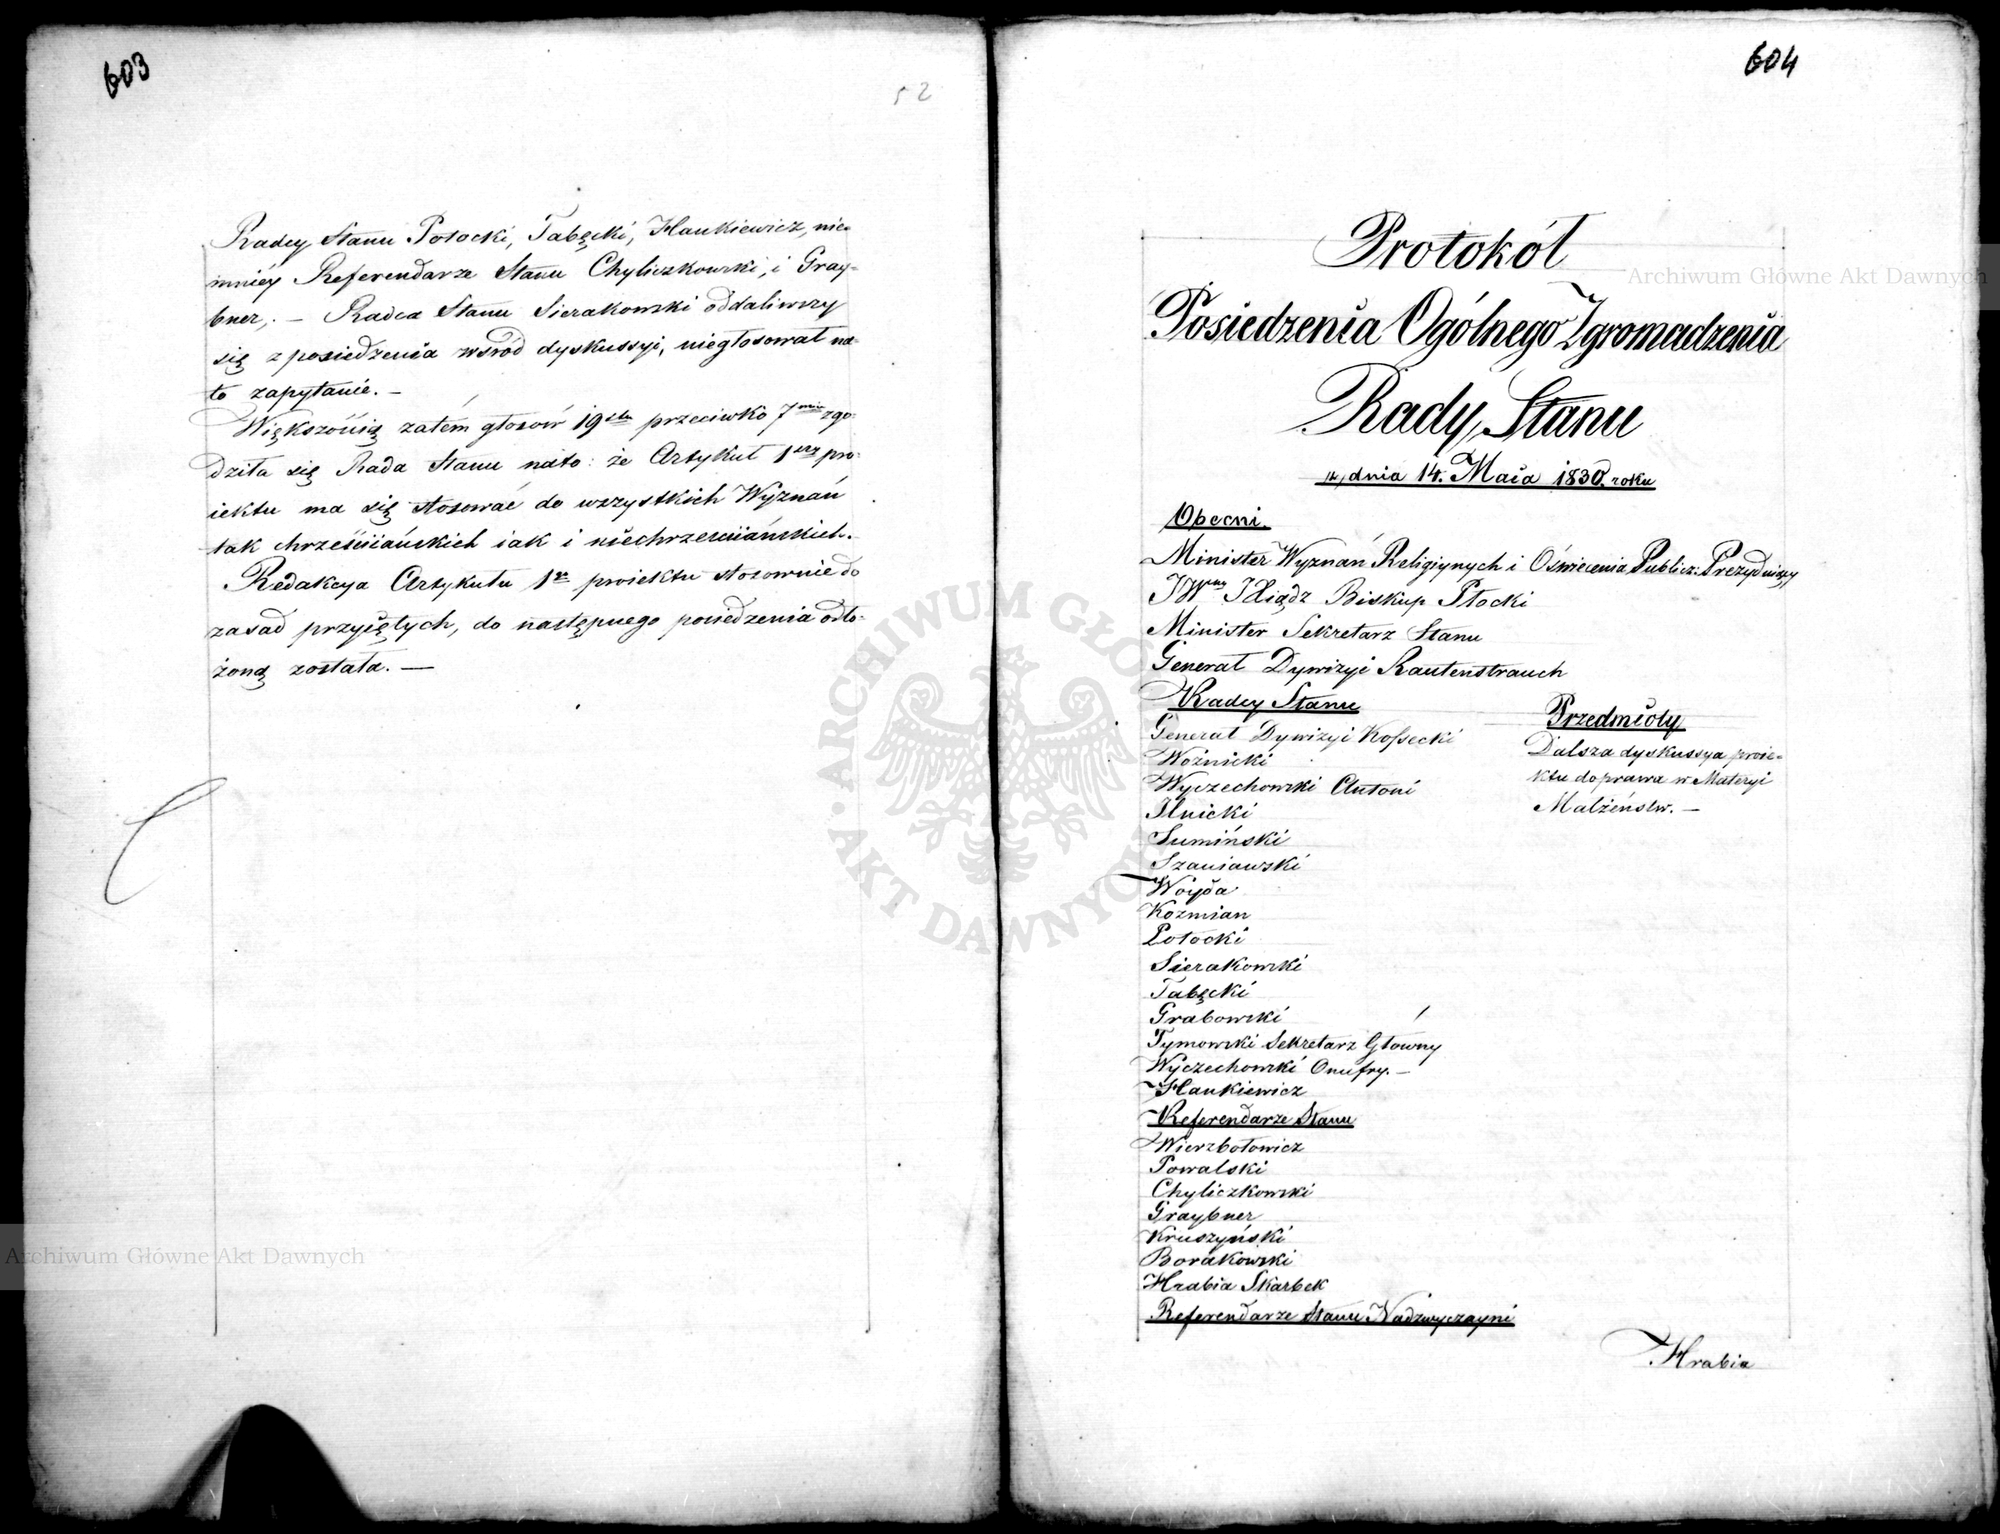 603
52
Radcy Stanu Potocki, Tabęcki, Hankiewicz, nie-
mniéy Referendarze Stanu Chyliczkowski, i Gray-
bner, . — Radca Stanu Sierakowski oddaliwszy
się z posiedzenia wśród dyskussyi, niegłosował na-
to zapytanie. —
Większością zatém głosów 19stu przeciwko 7miu zgo-
dziła się Rada Stanu nato: że Artykuł 1szy pro-
iektu ma się stosować do wszystkich Wyznań
tak chrześciiańskich iak i niechrzesciiańskich.
Redakcya Artykułu 1go proiektu stosownie do
zasad przyiętych, do następnego posiedzenia odło-
żoną została. —
604
Protokół
Posiedzenia Ogólnego Zgromadzenia
Rady Stanu
w dnia 14. Maia 1830. roku
Obecni.
Minister Wyznań Religiynych i Oświecenia Publicz: Prezyduiący
JWny JXiądz Biskup Płocki
Minister Sekretarz Stanu
Generał Dywizyi Rautenstrauch
Radcy Stanu
Generał Dywizyi Kossecki
Woźnicki
Wyczechowski Antoni
Ilnicki
Sumiński
Szaniawski
Woyda
Kozmian
Potocki
Sierakowski
Tabęcki
Grabowski
Tymowski Sekretarz Główny
Wyczechowski Onufry. —
Hankiewicz
Referendarze Stanu
Wierzbołowicz
Powalski
Chyliczkowski
Graybner
Kruszyński
Borakowski
Hrabia Skarbek
Referendarze Stanu Nadzwyczayni
Przedmioty
Dalsza dyskussya proie-
ktu do prawa w Materyi
Małżeństw. —
Hrabia
Archiwum Główne Akt Dawnych
Archiwum Główne Akt Dawnych
ARCHIWUM GŁÓWNE AKT DAWNYCH